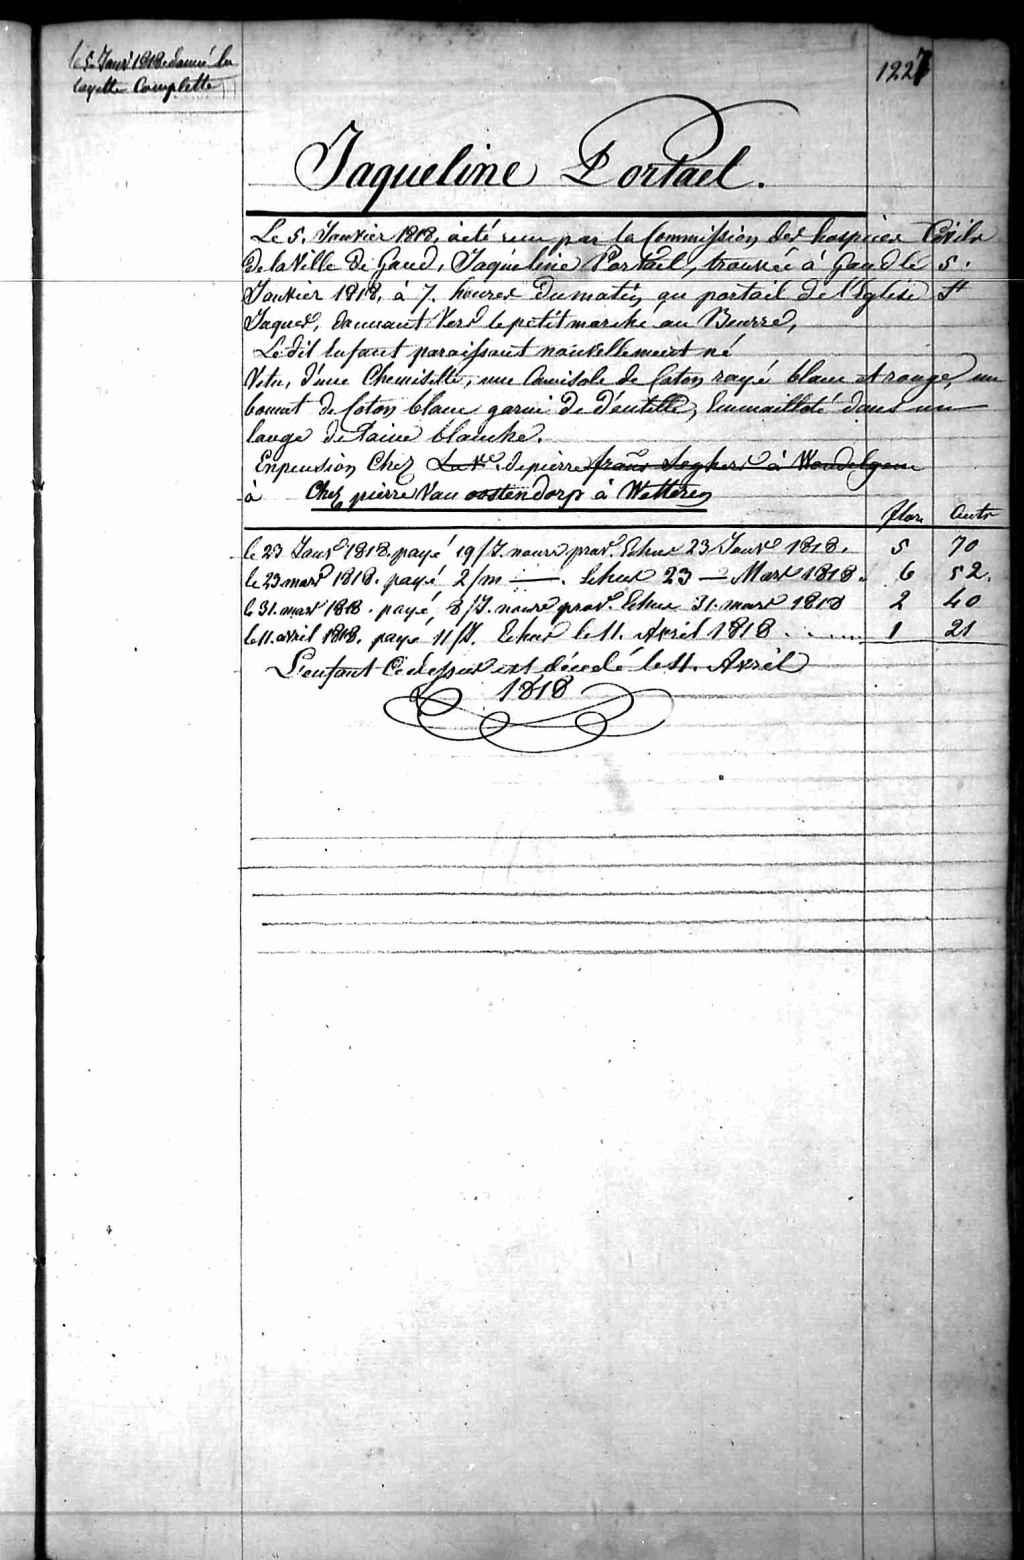 le 5. Janvr 1818. donné la
layette Complette
1227
Jaqueline Portael.
Le 5. Janvier 1818, a été recu par la Commission des hospices Civils
de la Ville de Gand, Jaqueline Portael, trouvée à Gand le 5.
Janvier 1818, à 7. heures du matin, au portail de l'Eglise St
Jaques, donnant Vers le petit marché au Beurre,
Le dit Enfant paraissant nouvellement né
Vetu, d'une Chemisette, une Camisole de Coton rayé blanc et rouge, un
bonnet de Coton blanc garni de d'entelle, Emmailloté dans un
lange de Laine blanche.
En pension Chez La Ve. de pierre frans Seghers à Wondelgem
à Chez pierre Van oostendorp à Wetteren
flor. Cents
le 23 Janvr 1818. payé 19/J. nourr. prov. Echue 23 Janvr 1818. 5 70
le 23 mars 1818. payé 2/m — . Echue 23 — Mars 1818. 6 52.
le 31. mars 1818. payé 8/J. nourr. prov. Echue 31. mars 1818 2 40
le 11. avril 1818. payé 11/J. Echus le 11. Avril 1818 . . .... 1 21
L'enfant Ci dessus est décédé le 11. Avril
1818